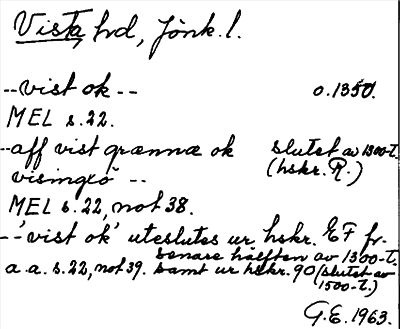 Vista, hd, Jönk. l.
--vist ok -- o. 1350.
MEL s. 22.
--aff vist grænnæ ok slutet av 1300-t.
visingsö -- (hskr. R.)
MEL s. 22, not 38.
--'vist ok' uteslutes ur hskr. EF fr.
senare hälften av 1300-t.
a. a. s. 22, not 39. samt ur hskr. 90 (slutet av
1500-t.)
G.E. 1963.